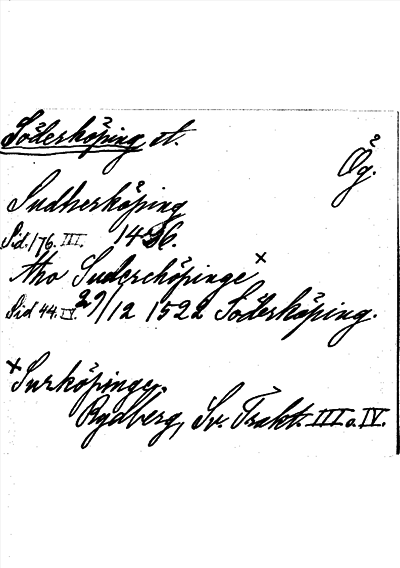 Söderköping st.
Ög.
Sudherköping
Sid. 176. III. 1436.
Aho Suderchöpinge x
Sid 44 IV. 29/12 1522 Söderköping.
x Surköpinge.
Rydberg, Sv. Trakt. III o. IV.